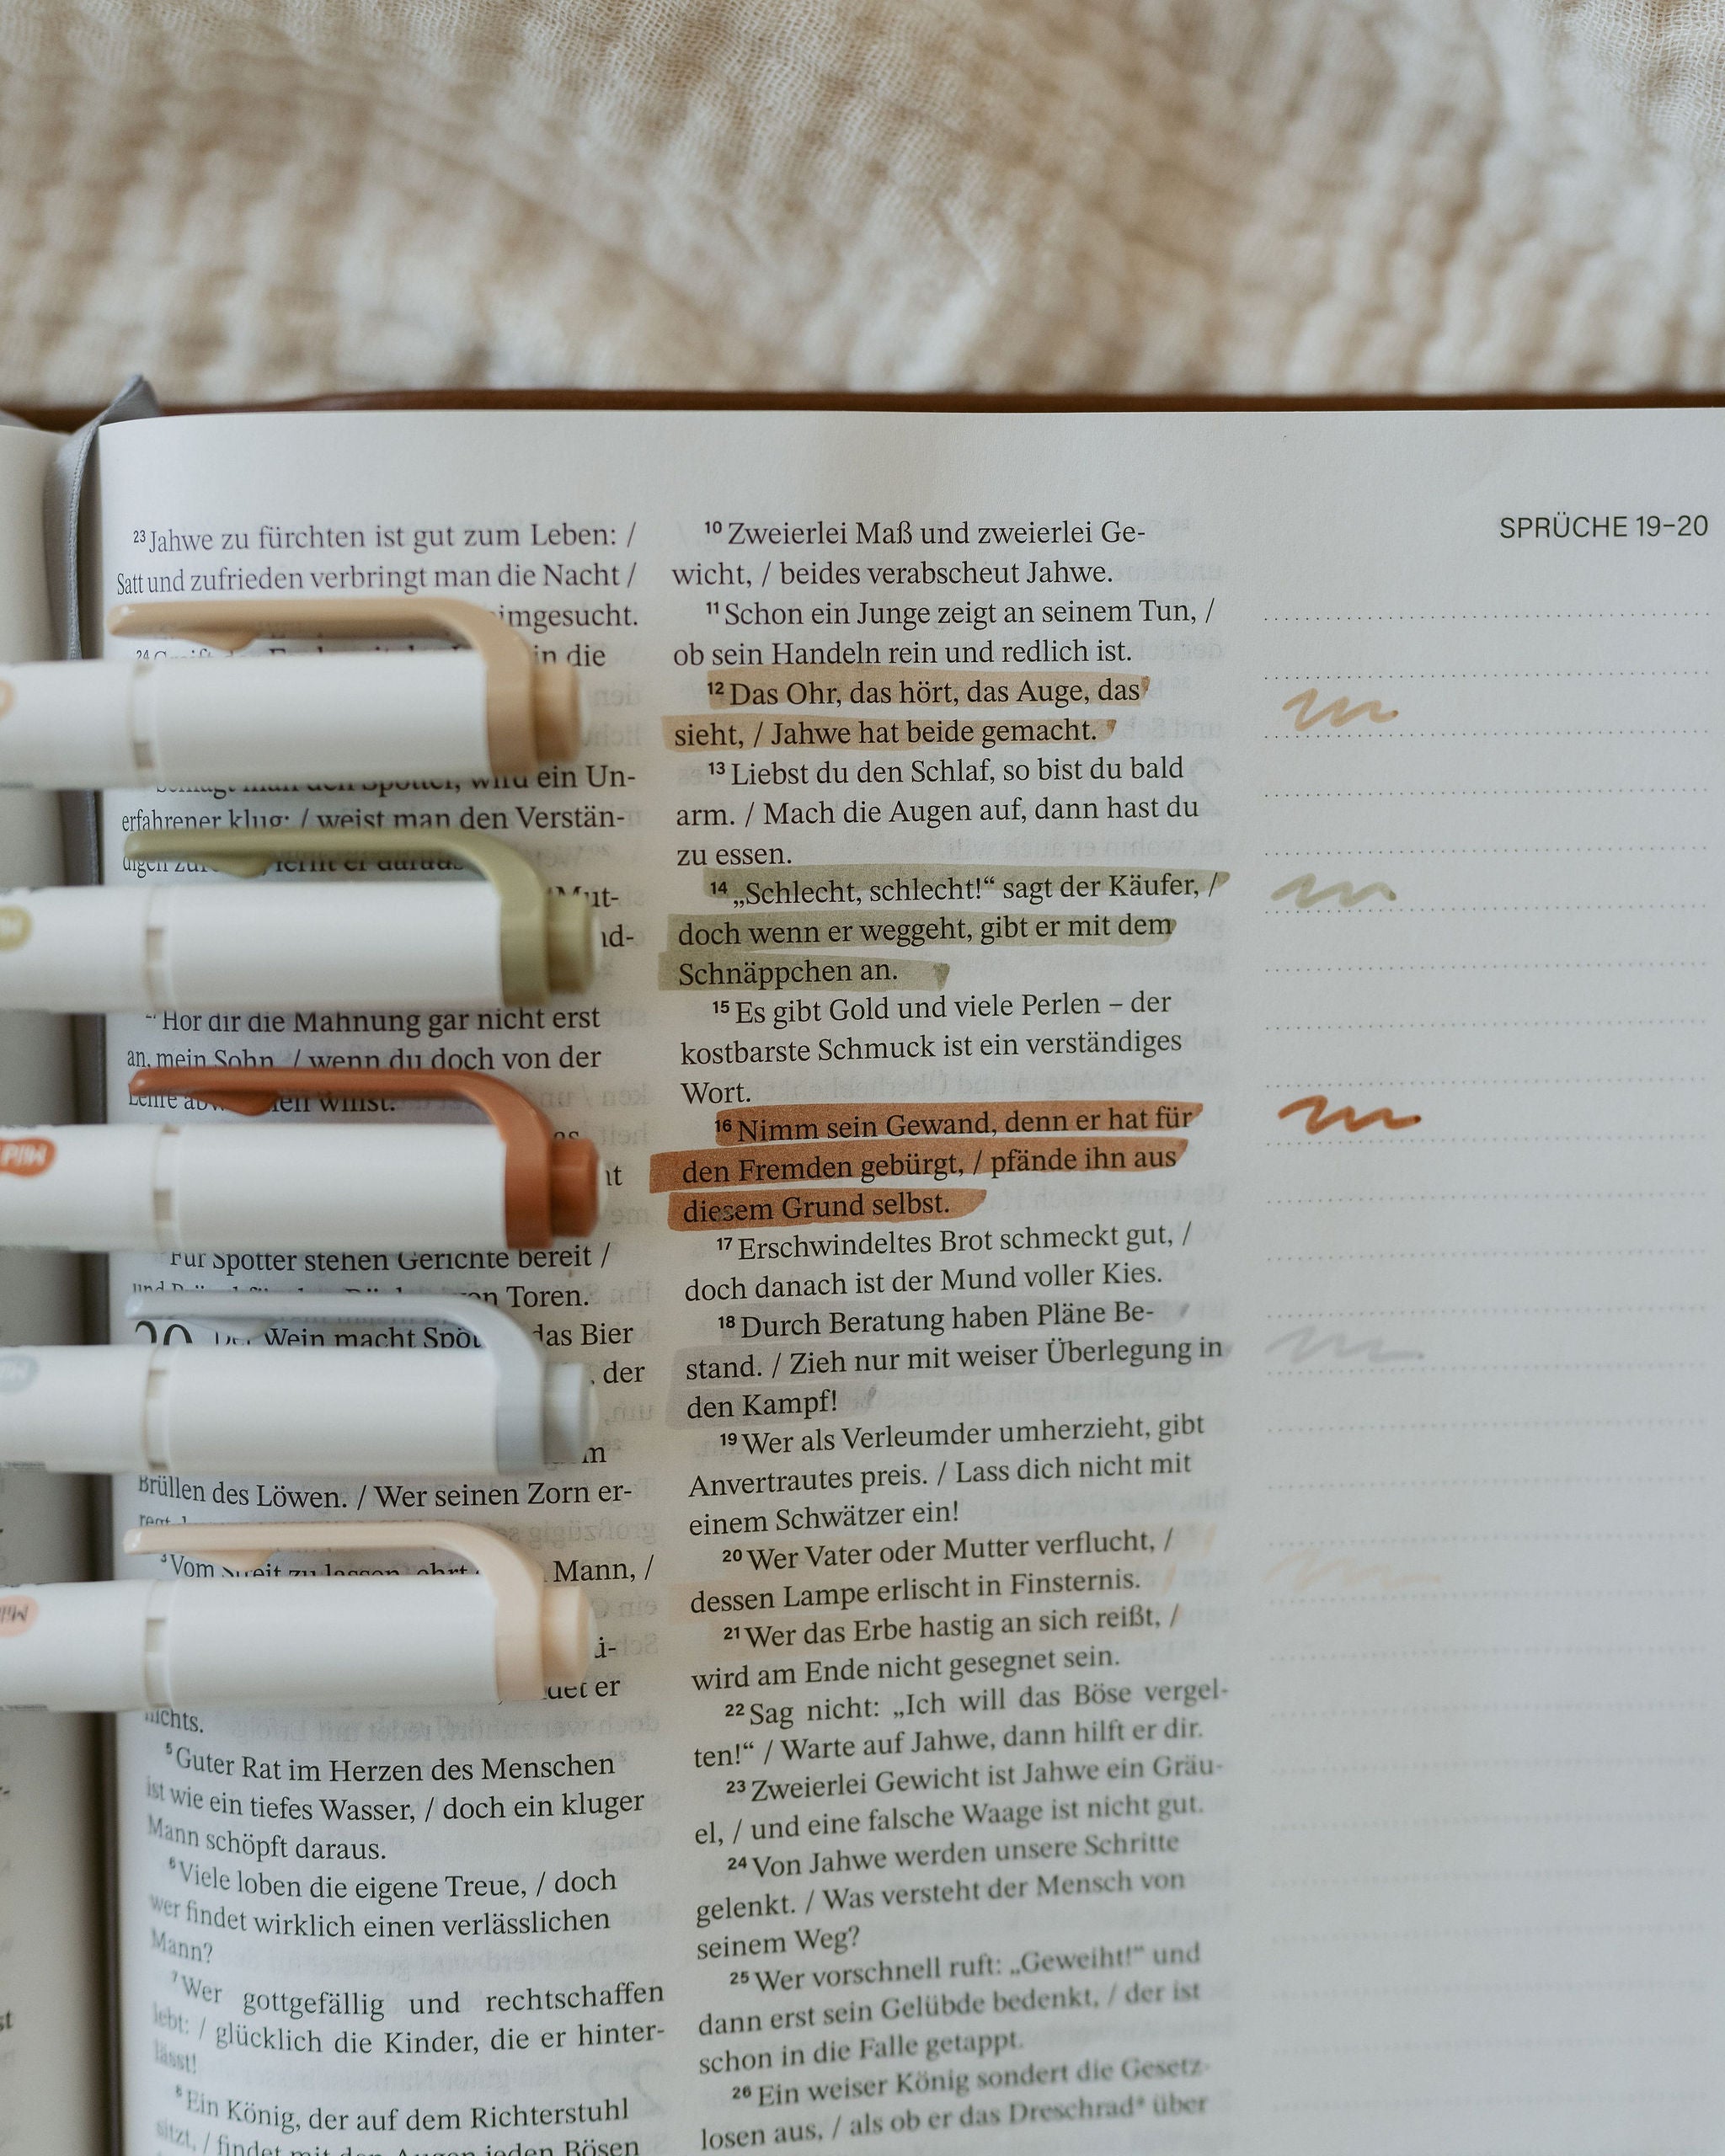 SPRÜCHE 19–20
23 Jahwe zu fürchten ist gut zum Leben: /
Satt und zufrieden verbringt man die Nacht /
imgesucht.
24 in die
wird ein Un-
erfahrener klug; / weist man den Verstän-
Mut-
nd-
Hör dir die Mahnung gar nicht erst
an, mein Sohn, / wenn du doch von der
Lehre willst.
Für Spötter stehen Gerichte bereit /
Toren.
20 Der Wein macht das Bier
der
Brüllen des Löwen. / Wer seinen Zorn er-
3 Vom Mann, /
det er
nichts.
5 Guter Rat im Herzen des Menschen
ist wie ein tiefes Wasser, / doch ein kluger
Mann schöpft daraus.
6 Viele loben die eigene Treue, / doch
wer findet wirklich einen verlässlichen
Mann?
7 Wer gottgefällig und rechtschaffen
lebt: / glücklich die Kinder, die er hinter-
lässt!
8 Ein König, der auf dem Richterstuhl
sitzt, / findet mit den Augen jeden Bösen
10 Zweierlei Maß und zweierlei Ge-
wicht, / beides verabscheut Jahwe.
11 Schon ein Junge zeigt an seinem Tun, /
ob sein Handeln rein und redlich ist.
12 Das Ohr, das hört, das Auge, das
sieht, / Jahwe hat beide gemacht.
13 Liebst du den Schlaf, so bist du bald
arm. / Mach die Augen auf, dann hast du
zu essen.
14 „Schlecht, schlecht!“ sagt der Käufer, /
doch wenn er weggeht, gibt er mit dem
Schnäppchen an.
15 Es gibt Gold und viele Perlen – der
kostbarste Schmuck ist ein verständiges
Wort.
16 Nimm sein Gewand, denn er hat für
den Fremden gebürgt, / pfände ihn aus
diesem Grund selbst.
17 Erschwindeltes Brot schmeckt gut, /
doch danach ist der Mund voller Kies.
18 Durch Beratung haben Pläne Be-
stand. / Zieh nur mit weiser Überlegung in
den Kampf!
19 Wer als Verleumder umherzieht, gibt
Anvertrautes preis. / Lass dich nicht mit
einem Schwätzer ein!
20 Wer Vater oder Mutter verflucht, /
dessen Lampe erlischt in Finsternis.
21 Wer das Erbe hastig an sich reißt, /
wird am Ende nicht gesegnet sein.
22 Sag nicht: „Ich will das Böse vergel-
ten!“ / Warte auf Jahwe, dann hilft er dir.
23 Zweierlei Gewicht ist Jahwe ein Gräu-
el, / und eine falsche Waage ist nicht gut.
24 Von Jahwe werden unsere Schritte
gelenkt. / Was versteht der Mensch von
seinem Weg?
25 Wer vorschnell ruft: „Geweiht!“ und
dann erst sein Gelübde bedenkt, / der ist
schon in die Falle getappt.
26 Ein weiser König sondert die Gesetz-
losen aus, / als ob er das Dreschrad* über